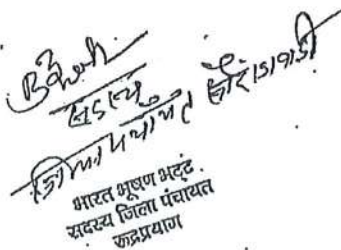 सदस्य
जिला पंचायत
भारत भूषण भट्ट
सदस्य जिला पंचायत
रूद्रप्रयाग